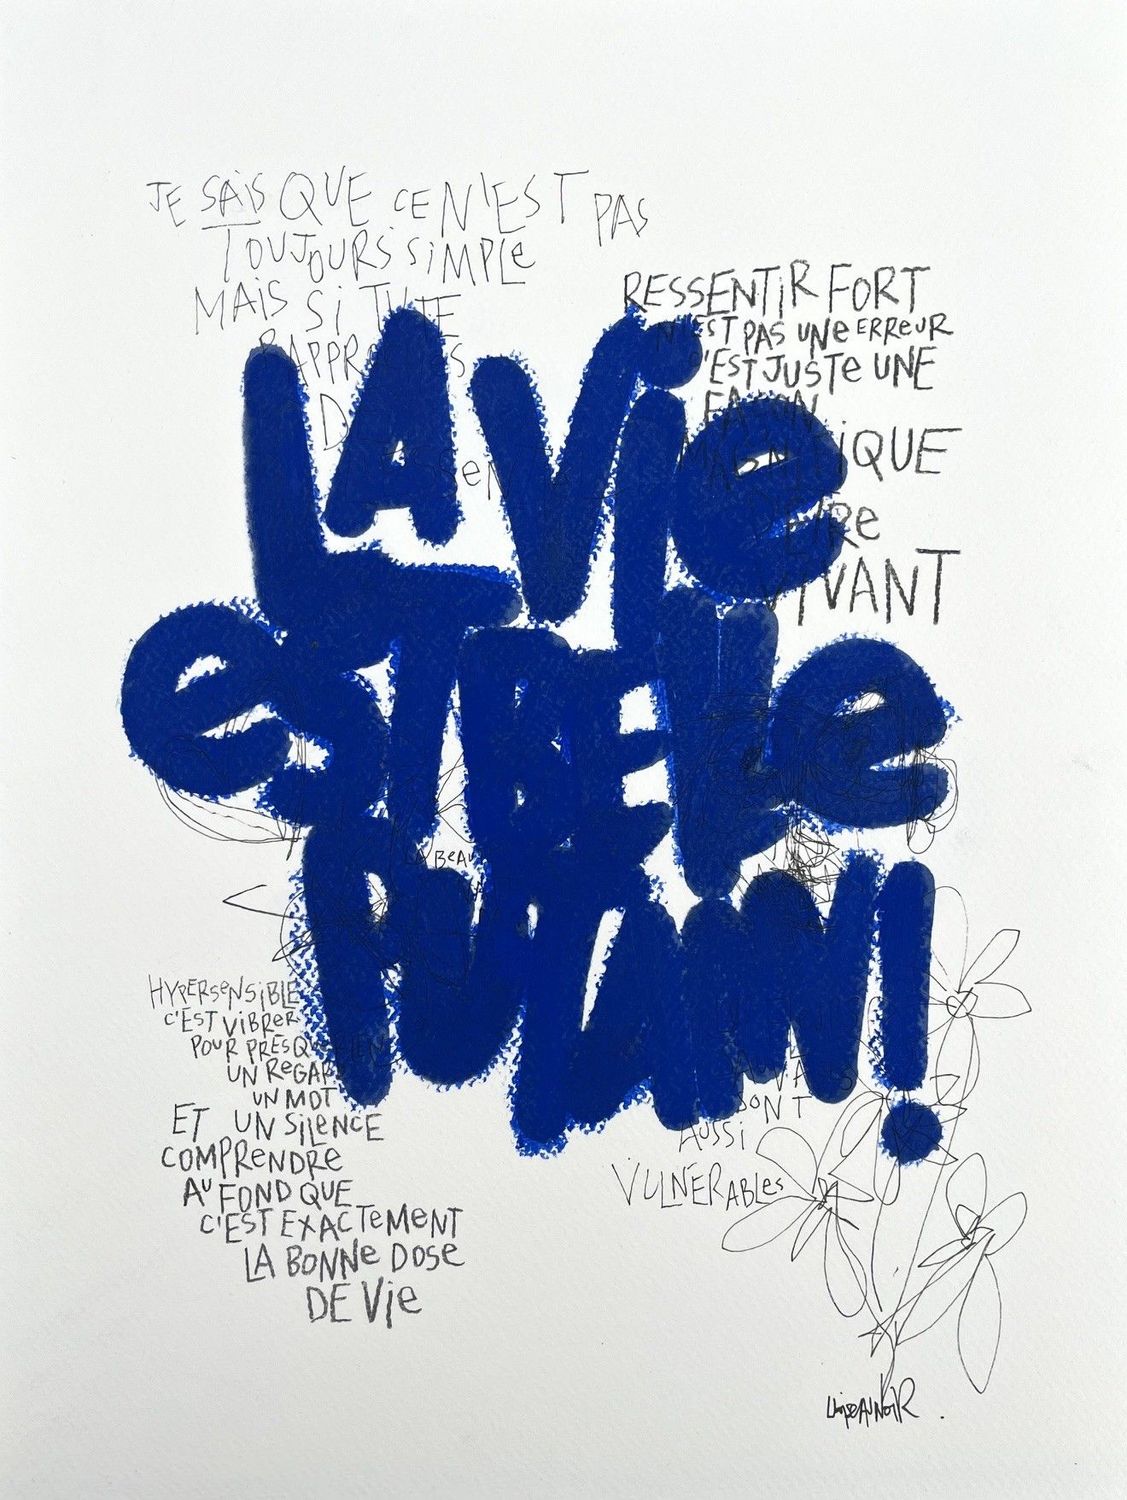 JE SAIS QUE CE N'EST PAS
TOUJOURS SiMPLe
MAIS Si TU TE
RESSENTiR FORT
N'EST PAS UNe ERReUR
C'EST JUSTe UNE
FAÇON
MAGNIFIQUE
D'ETRe
VIVANT
LA Vie
eST BELLe
PUTAIN!
LA BEAU
HYPERSeNSiBLE
C'EST ViBRER
POUR PRESQUE RIEN
UN ReGARD
UN MOT
ET UN SiLENCE
COMPRENDRE
AU FOND QUE
C'EST EXACTeMeNT
LA BONNe DOSe
DE Vie
SONT
AUSSi
VULNERABLes
L'InseAuNoiR.